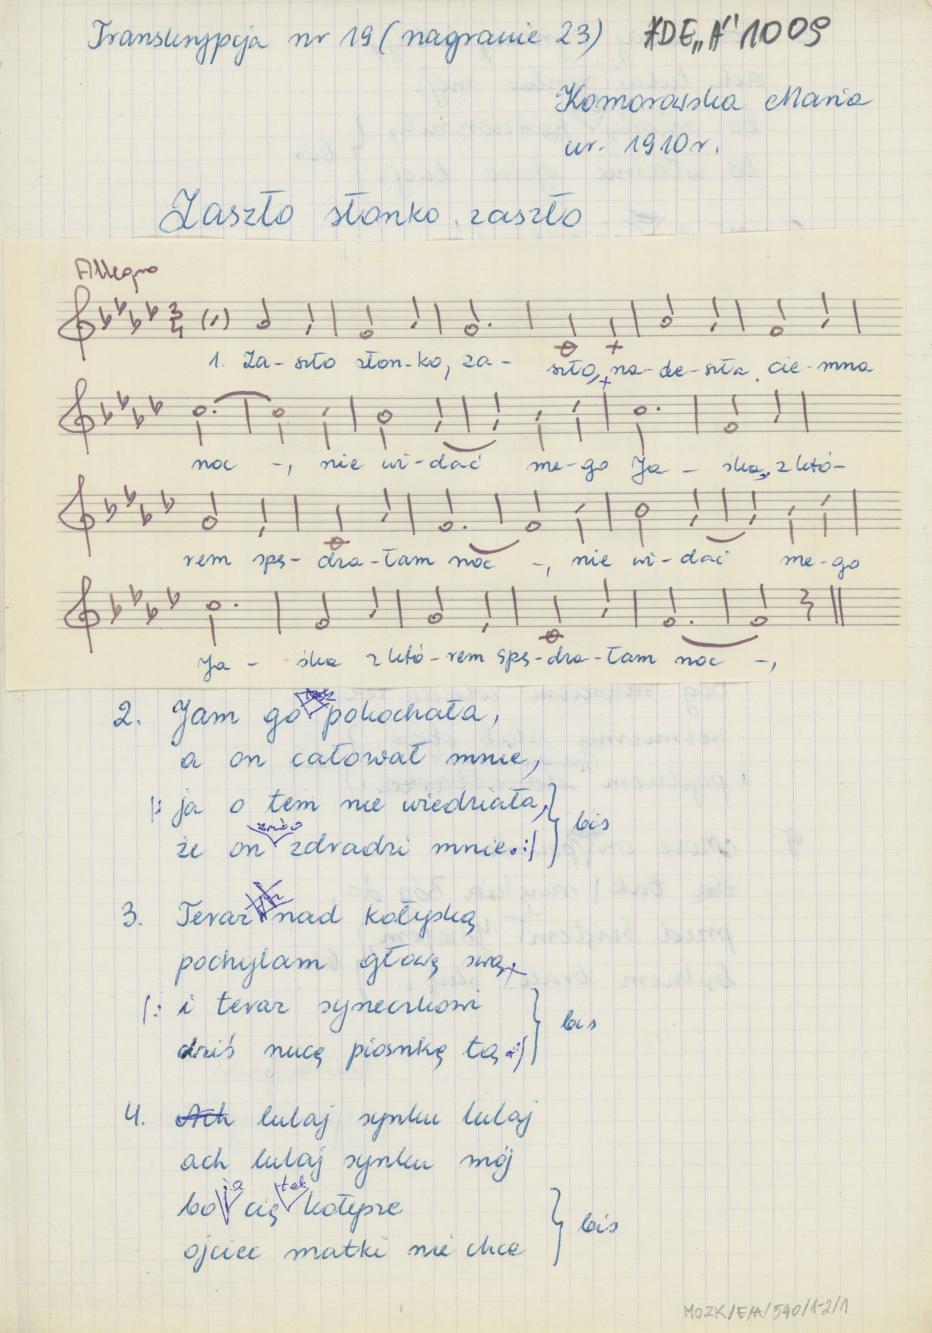 Transkrypcja nr 19 (nagranie 23) ADE„A" 1009
Komorowska Maria
ur. 1910 r.
Zaszło słonko, zaszło
Allegro
3/4
1. Za- szło słon-ko, za- szło, na-de-szła cie-mna
noc -, nie wi-dać me-go Ja - śka, z któ-
rem spę- dza-łam noc -, nie wi-dać me-go
Ja - śka z któ-rem spę-dza-łam noc -,
2. Jam go pokochała,
a on całował mnie,
|: ja o tem nie wiedziała,
znów
że on zdradzi mnie. :| } bis
3. Teraz nad kołyską
pochylam głowę swą
|: i teraz syneczkowi
dziś nucę piosnkę tą :| } bis
4. Ach lulaj synku lulaj
ach lulaj synku mój
ja tak
bo cię kołysze
ojciec matki nie chce } bis
MOZK/E/A/540/1-2/1